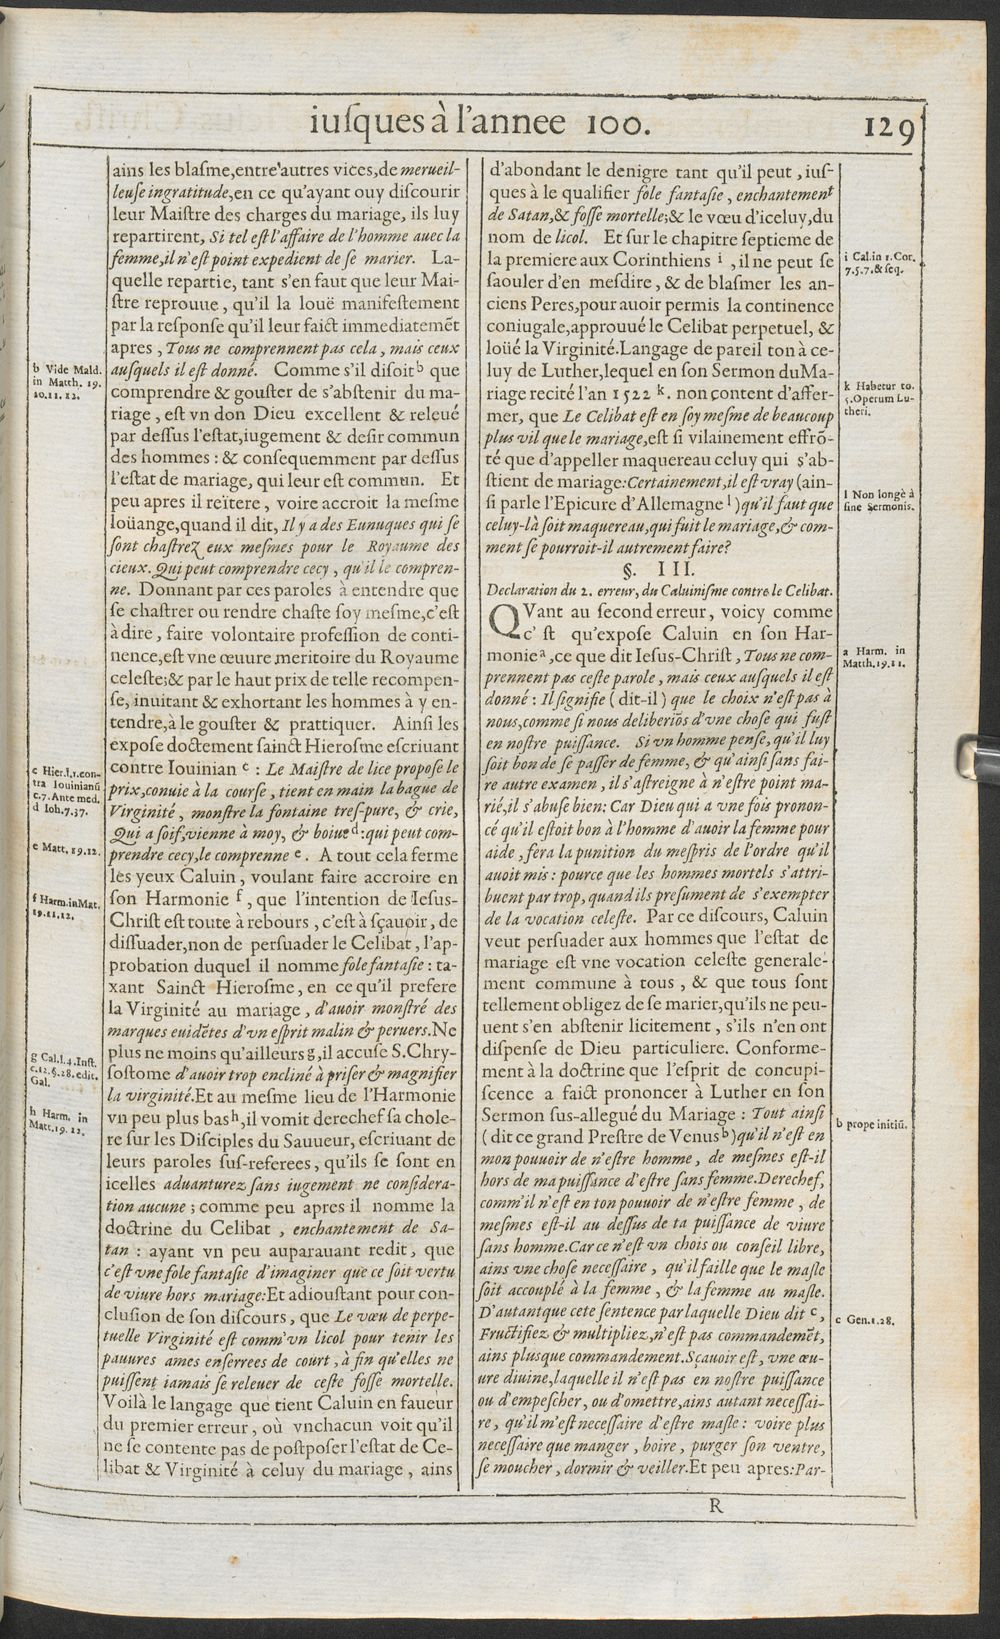 iuſques à l'annee 100.
129
ains les blaſme,entre'autres vices,de merueil-
leuſe ingratitude,en ce qu'ayant ouy diſcourir
leur Maiſtre des charges du mariage, ils luy
repartirent, Si tel eſt l'affaire de l'homme auec la
femme,il n'eſt point expedient de ſe marier. La-
quelle repartie, tant s'en faut que leur Mai-
ſtre reprouue, qu'il la louë manifeſtement
par la reſponſe qu'il leur faict immediatemēt
apres, Tous ne comprennent pas cela, mais ceux
auſquels il eſt donné. Comme s'il diſoit b que
comprendre & gouſter de s'abſtenir du ma-
riage, eſt vn don Dieu excellent & releué
par deſſus l'eſtat,iugement & deſir commun
des hommes : & conſequemment par deſſus
l'eſtat de mariage, qui leur eſt commun. Et
peu apres il reïtere, voire accroit la meſme
loüange,quand il dit, Il y a des Eunuques qui ſe
ſont chaſtrez eux meſmes pour le Royaume des
cieux. Qui peut comprendre cecy, qu'il le compren-
ne. Donnant par ces paroles à entendre que
ſe chaſtrer ou rendre chaſte ſoy meſme,c'eſt
à dire, faire volontaire profeſſion de conti-
nence,eſt vne œuure meritoire du Royaume
celeſte;& par le haut prix de telle recompen-
ſe, inuitant & exhortant les hommes à y en-
tendre,à le gouſter & prattiquer. Ainſi les
expoſe doctement ſainct Hieroſme eſcriuant
contre Iouinian c : Le Maiſtre de lice propoſe le
prix,conuie à la courſe, tient en main la bague de
Virginité, monſtre la fontaine treſ-pure, & crie,
Qui a ſoif,vienne à moy, & boiue d:qui peut com-
prendre cecy,le comprenne e. A tout cela ferme
les yeux Caluin, voulant faire accroire en
ſon Harmonie f, que l'intention de Ieſus-
Chriſt eſt toute à rebours, c'eſt à ſçauoir, de
diſſuader,non de perſuader le Celibat, l'ap-
probation duquel il nomme fole fantaſie : ta-
xant Sainct Hieroſme, en ce qu'il prefere
la Virginité au mariage, d'auoir monſtré des
marques euidētes d'vn eſprit malin & peruers.Ne
plus ne moins qu'ailleurs g,il accuſe S.Chry-
ſoſtome d'auoir trop encliné à priſer & magnifier
la virginité.Et au meſme lieu de l'Harmonie
vn peu plus bas h,il vomit derechef ſa chole-
re ſur les Diſciples du Sauueur, eſcriuant de
leurs paroles ſuſ-referees, qu'ils ſe ſont en
icelles aduanturez ſans iugement ne conſidera-
tion aucune ; comme peu apres il nomme la
doctrine du Celibat, enchantement de Sa-
tan : ayant vn peu auparauant redit, que
c'eſt vne fole fantaſie d'imaginer que ce ſoit vertu
de viure hors mariage:Et adiouſtant pour con-
cluſion de ſon diſcours, que Le vœu de perpe-
tuelle Virginité eſt comm'vn licol pour tenir les
pauures ames enſerrees de court, à fin qu'elles ne
puiſſent iamais ſe releuer de ceſte foſſe mortelle.
Voilà le langage que tient Caluin en faueur
du premier erreur, où vnchacun voit qu'il
ne ſe contente pas de poſtpoſer l'eſtat de Ce-
libat & Virginité à celuy du mariage, ains
b Vide Mald.
in Matth. 19.
10.11.12.
c Hier.l.1.con-
tra Iouinianū
c.7.Ante med.
d Ioh.7.37.
e Matt.19.12.
f Harm.inMat.
19.11.12.
g Cal.l.4.Inſt.
c.12.§.28.edit.
Gal.
h Harm. in
Matt.19.12.
d'abondant le denigre tant qu'il peut, iuſ-
ques à le qualifier fole fantaſie, enchantement
de Satan,& foſſe mortelle;& le vœu d'iceluy,du
nom de licol. Et ſur le chapitre ſeptieme de
la premiere aux Corinthiens i, il ne peut ſe
ſaouler d'en meſdire, & de blaſmer les an-
ciens Peres,pour auoir permis la continence
coniugale,approuué le Celibat perpetuel, &
loüé la Virginité.Langage de pareil ton à ce-
luy de Luther,lequel en ſon Sermon duMa-
riage recité l'an 1522 k. non content d'affer-
mer, que Le Celibat eſt en ſoy meſme de beaucoup
plus vil que le mariage,eſt ſi vilainement effrō-
té que d'appeller maquereau celuy qui s'ab-
ſtient de mariage:Certainement,il eſt vray (ain-
ſi parle l'Epicure d'Allemagne l)qu'il faut que
celuy-là ſoit maquereau,qui fuit le mariage,& com-
ment ſe pourroit-il autrement faire?
§. III.
Declaration du 2. erreur, du Caluiniſme contre le Celibat.
QVant au ſecond erreur, voicy comme
c' ſt qu'expoſe Caluin en ſon Har-
monie a,ce que dit Ieſus-Chriſt, Tous ne com-
prennent pas ceſte parole, mais ceux auſquels il eſt
donné : Il ſignifie (dit-il) que le choix n'eſt pas à
nous,comme ſi nous deliberiōs d'vne choſe qui fuſt
en noſtre puiſſance. Si vn homme penſe, qu'il luy
ſoit bon de ſe paſſer de femme, & qu'ainſi ſans fai-
re autre examen, il s'aſtreigne à n'eſtre point ma-
rié,il s'abuſe bien: Car Dieu qui a vne fois pronon-
cé qu'il eſtoit bon à l'homme d'auoir la femme pour
aide, fera la punition du meſpris de l'ordre qu'il
auoit mis : pource que les hommes mortels s'attri-
buent par trop, quand ils preſument de s'exempter
de la vocation celeſte. Par ce diſcours, Caluin
veut perſuader aux hommes que l'eſtat de
mariage eſt vne vocation celeſte generale-
ment commune à tous, & que tous ſont
tellement obligez de ſe marier,qu'ils ne peu-
uent s'en abſtenir licitement, s'ils n'en ont
diſpenſe de Dieu particuliere. Conforme-
ment à la doctrine que l'eſprit de concupi-
ſcence a faict prononcer à Luther en ſon
Sermon ſus-allegué du Mariage : Tout ainſi
(dit ce grand Preſtre de Venus b)qu'il n'eſt en
mon pouuoir de n'eſtre homme, de meſmes eſt-il
hors de ma puiſſance d'eſtre ſans femme.Derechef,
comm'il n'eſt en ton pouuoir de n'eſtre femme, de
meſmes eſt-il au deſſus de ta puiſſance de viure
ſans homme.Car ce n'eſt vn chois ou conſeil libre,
ains vne choſe neceſſaire, qu'il faille que le maſle
ſoit accouplé à la femme, & la femme au maſle.
D'autant que cete ſentence par laquelle Dieu dit c,
Fructifiez & multipliez,n'eſt pas commandemēt,
ains pluſque commandement.Sçauoir eſt, vne œu-
ure diuine,laquelle il n'eſt pas en noſtre puiſſance
ou d'empeſcher, ou d'omettre,ains autant neceſſai-
re, qu'il m'eſt neceſſaire d'eſtre maſle : voire plus
neceſſaire que manger, boire, purger ſon ventre,
ſe moucher, dormir & veiller.Et peu apres:Par-
i Cal.in 1.Cor.
7.5.7.& ſeq.
k Habetur to.
5.Operum Lu-
theri.
l Non longè à
fine Sermonis.
a Harm. in
Matth.19.11.
b prope initiū.
c Gen.1.28.
R